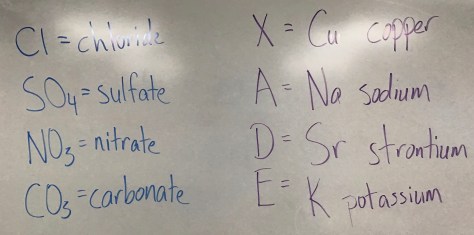 Cl = chloride
SO4 = sulfate
NO3 = nitrate
CO3 = carbonate
X = Cu copper
A = Na sodium
D = Sr strontium
E = K potassium